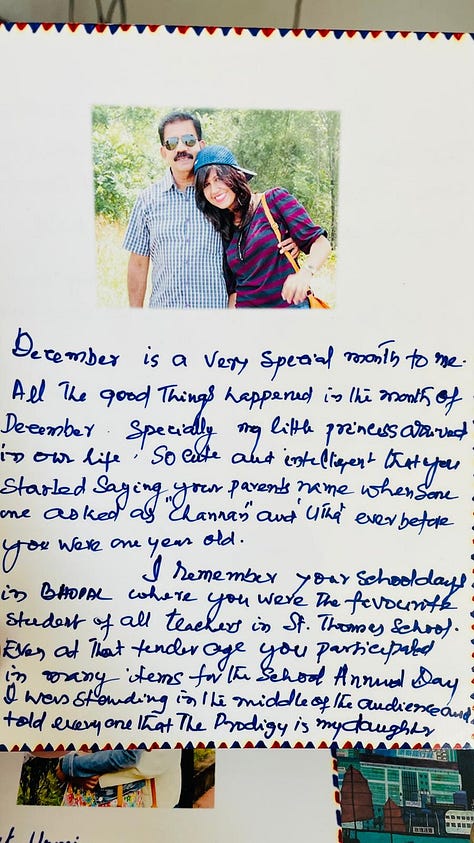 December is a very special month to me.
All the good things happened in the month of
December. Specially my little princess arrived
in our life. So cute and intelligent that you
started saying your parents name when some
one asked as "Channan" and "Utha" ever before
you were one year old.
I remember your school days
in BHOPAL where you were the favourite
student of all teachers in St. Thomas School.
Even at that tender age you participated
in many items for the School Annual Day
I was standing in the middle of the audience and
told everyone that The Prodigy is my daughter